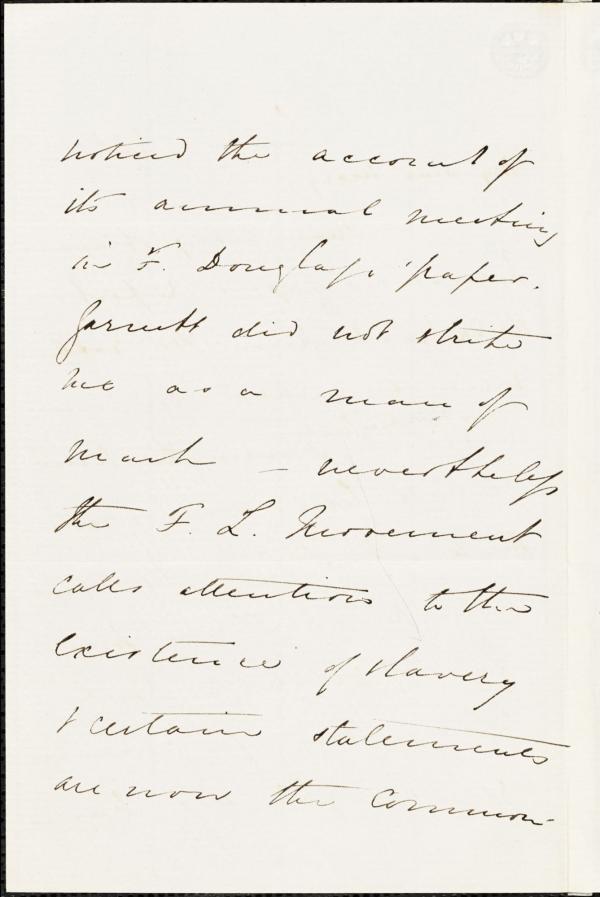 noticed the account of
its annual meeting
in F. Douglass' paper.
Garnett did not strike
me as a man of
mark – nevertheless
the F. L. Movement
calls attention to the
existence of slavery
& certain statements
are now the common-